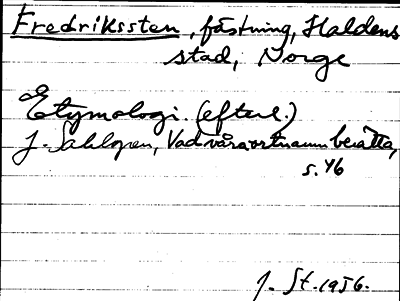 Fredrikssten, fästning, Haldens
stad, Norge
Etymologi. (efterl.)
J. Sahlgren, Vad våra ortnamn berätta,
s. 46
J. St. 1956.